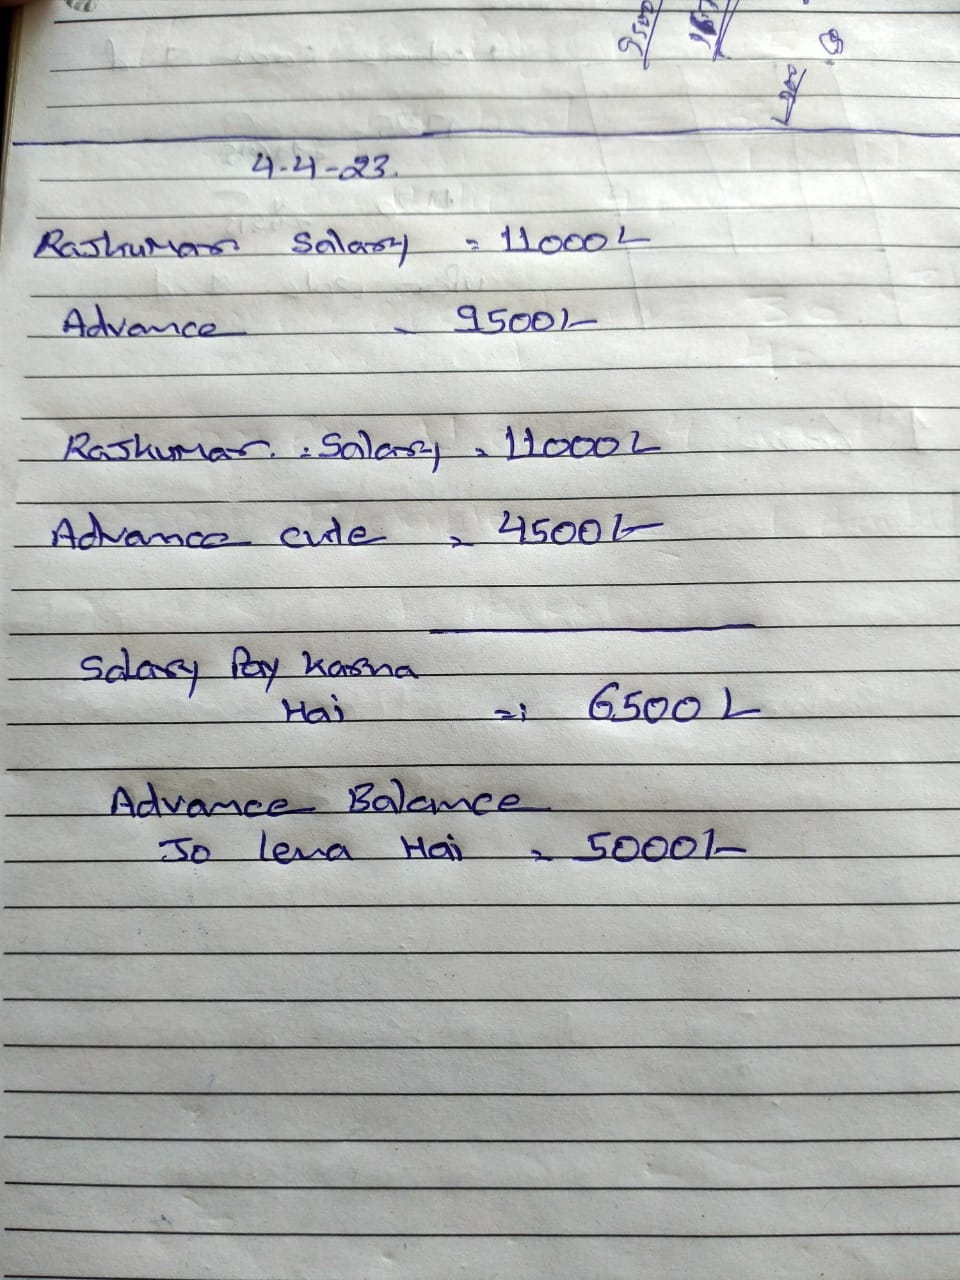 4-4-23.
Rajkumar Salary = 11000/-
Advance - 9500/-
Rajkumar : Salary = 11000/-
Advance cute = 4500/-
Salary Pay Karna
Hai =: 6500/-
Advance Balance
Jo lena Hai = 5000/-